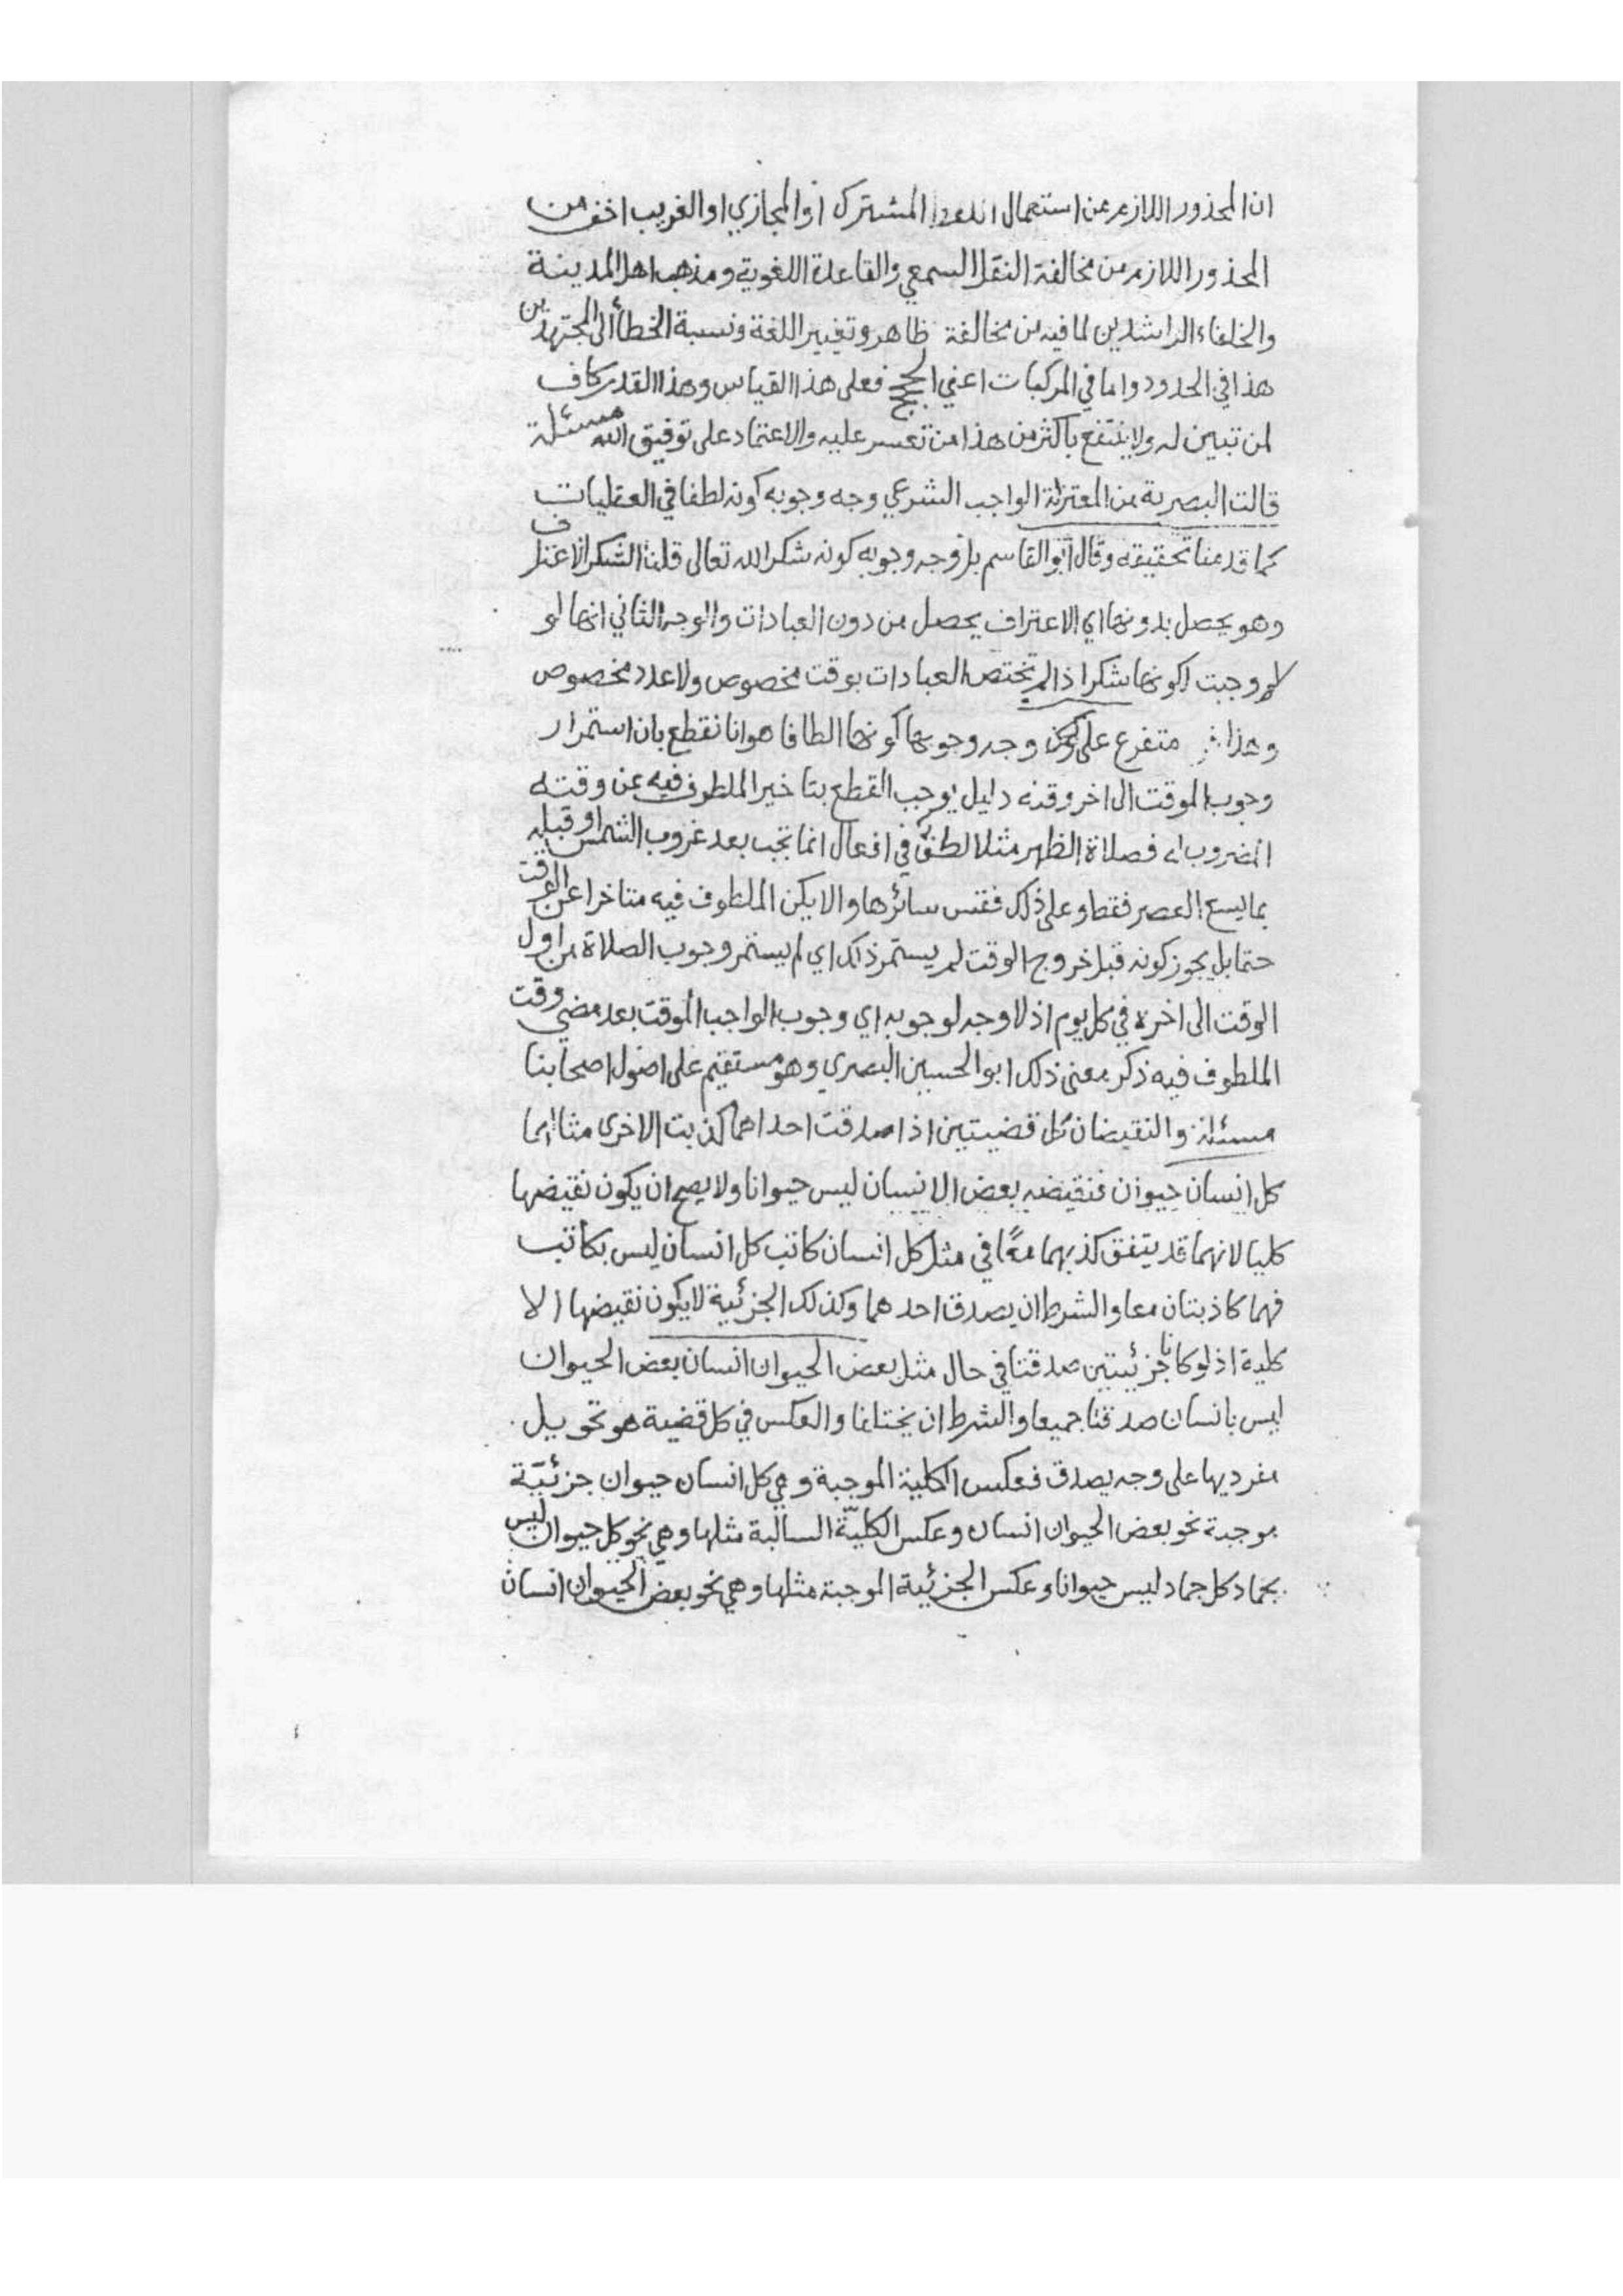 ان المحذور اللازم من استعمال اللفظ المشترك او المجازي او الغريب اخف من
المحذور اللازم من مخالفة النقل السمعي والقاعدة اللغوية ومذهب اهل المدينة
والخلفاء الراشدين لما فيه من مخالفة ظاهر وتغيير اللغة ونسبة الخطأ الى المجتهدين
هذا في الحدود واما في المركبات اعني الحجج فعلى هذا القياس وهذا القدر كاف
لمن تبين له ولا ينتفع باكثر من هذا من تعسر عليه والاعتماد على توفيق الله مسئلة
قالت البصرية من المعتزلة الواجب الشرعي وجه وجوبه كونه لطفا في العقليات
كما قدمنا تحقيقه وقال ابو القاسم بل وجه وجوبه كونه شكرا لله تعالى قلنا الشكر الاعتراف
وهو يحصل بدونها اي الاعتراف يحصل من دون العبادات والوجه الثاني انها لو
وجبت لكونها شكرا اذا لم تختص العبادات بوقت مخصوص ولا عدد مخصوص
وهذا متفرع على وجه وجوبها كونها الطافا هو انا نقطع بان استمرار
وجوب الموقت الى اخر وقته دليل يوجب القطع بتاخير الملطوف فيه عن وقته
المضروب له فصلاة الظهر مثلا لطف في افعال انما تجب بعد غروب الشمس او قبله
بما يسع العصر فقط وعلى ذلك فقس سائرها والا يكن الملطوف فيه متاخرا عن الوقت
حتما بل يجوز كونه قبل خروج الوقت لم يستمر ذلك اي لم يستمر وجوب الصلاة من اول
الوقت الى اخره في كل يوم اذ لا وجه لوجوبه اي وجوب الواجب الموقت بعد مضي وقت
الملطوف فيه ذكر معنى ذلك ابو الحسين البصري وهو مستقيم على اصول اصحابنا
مسئلة والنقيضان كل قضيتين اذا صدقت احداهما كذبت الاخرى مثالهما
كل انسان حيوان فنقيضه بعض الانسان ليس حيوانا ولا يصح ان يكون نقيضها
كليا لانهما قد يتفق كذبهما معًا في مثل كل انسان كاتب كل انسان ليس بكاتب
فهما كاذبتان معا والشرط ان يصدق احدهما وكذلك الجزئية لا يكون نقيضها الا
كلية اذ لو كانا جزئيتين صدقتا في حال مثل بعض الحيوان انسان بعض الحيوان
ليس بانسان صدقتا جميعا والشرط ان يختلفا والعكس في كل قضية هو تحويل
مفرديها على وجه يصدق فعكس الكلية الموجبة وهي كل انسان حيوان جزئيّة
موجبة نحو بعض الحيوان انسان وعكس الكليّة السالبة مثلها وهي نحو كل حيوان ليس
بجماد كل جماد ليس حيوانا وعكس الجزئية الموجبة مثلها وهي نحو بعض الحيوان انسان